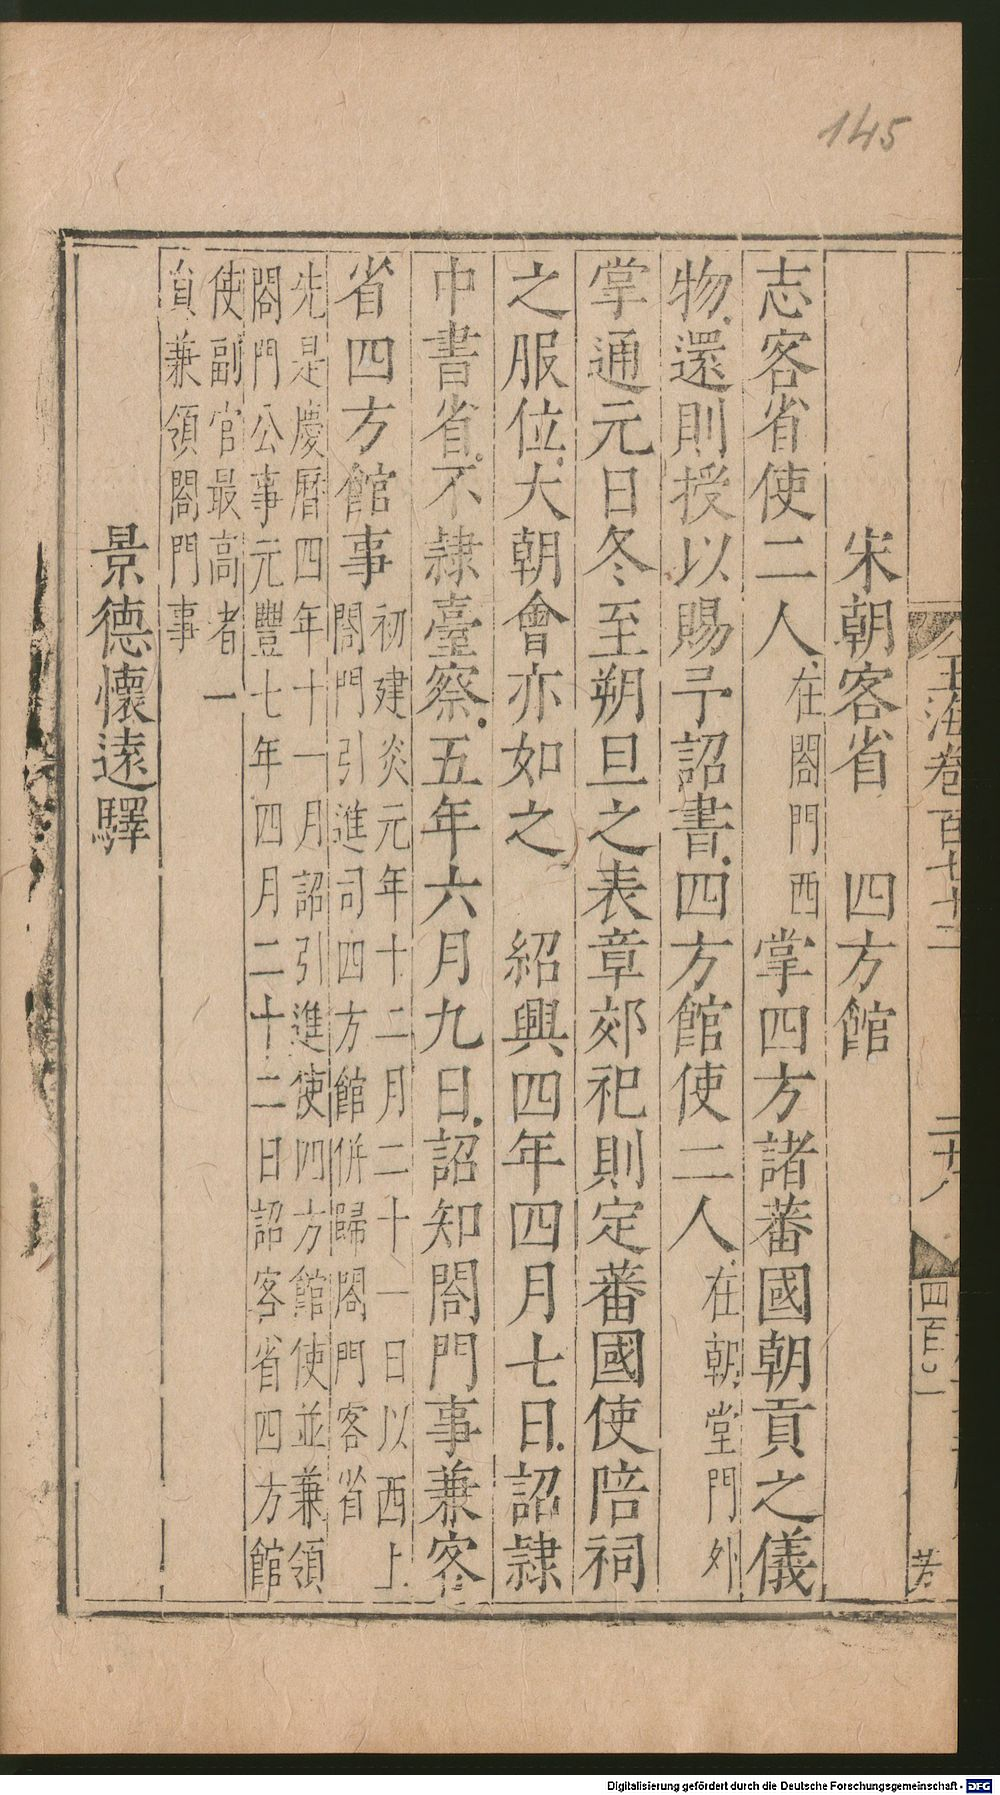 145
玉海卷百七十二
宋朝客省 四方館
志客省使二人在閤門西掌四方諸蕃國朝貢之儀
物還則授以賜予詔書四方館使二人在朝堂門外
掌通元日冬至朔旦之表章郊祀則定蕃國使陪祠
之服位大朝會亦如之 紹興四年四月七日詔隷
中書省不隷臺察五年六月九日詔知閤門事兼客
省四方館事初建炎元年十二月二十一日以西上
閤門引進司四方館併歸閤門客省
先是慶曆四年十一月詔引進使四方館使並兼領
閤門公事元豐七年四月二十二日詔客省四方館
使副官最高者一
員兼領閤門事
景德懷遠驛
Digitalisierung gefördert durch die Deutsche Forschungsgemeinschaft - DFG